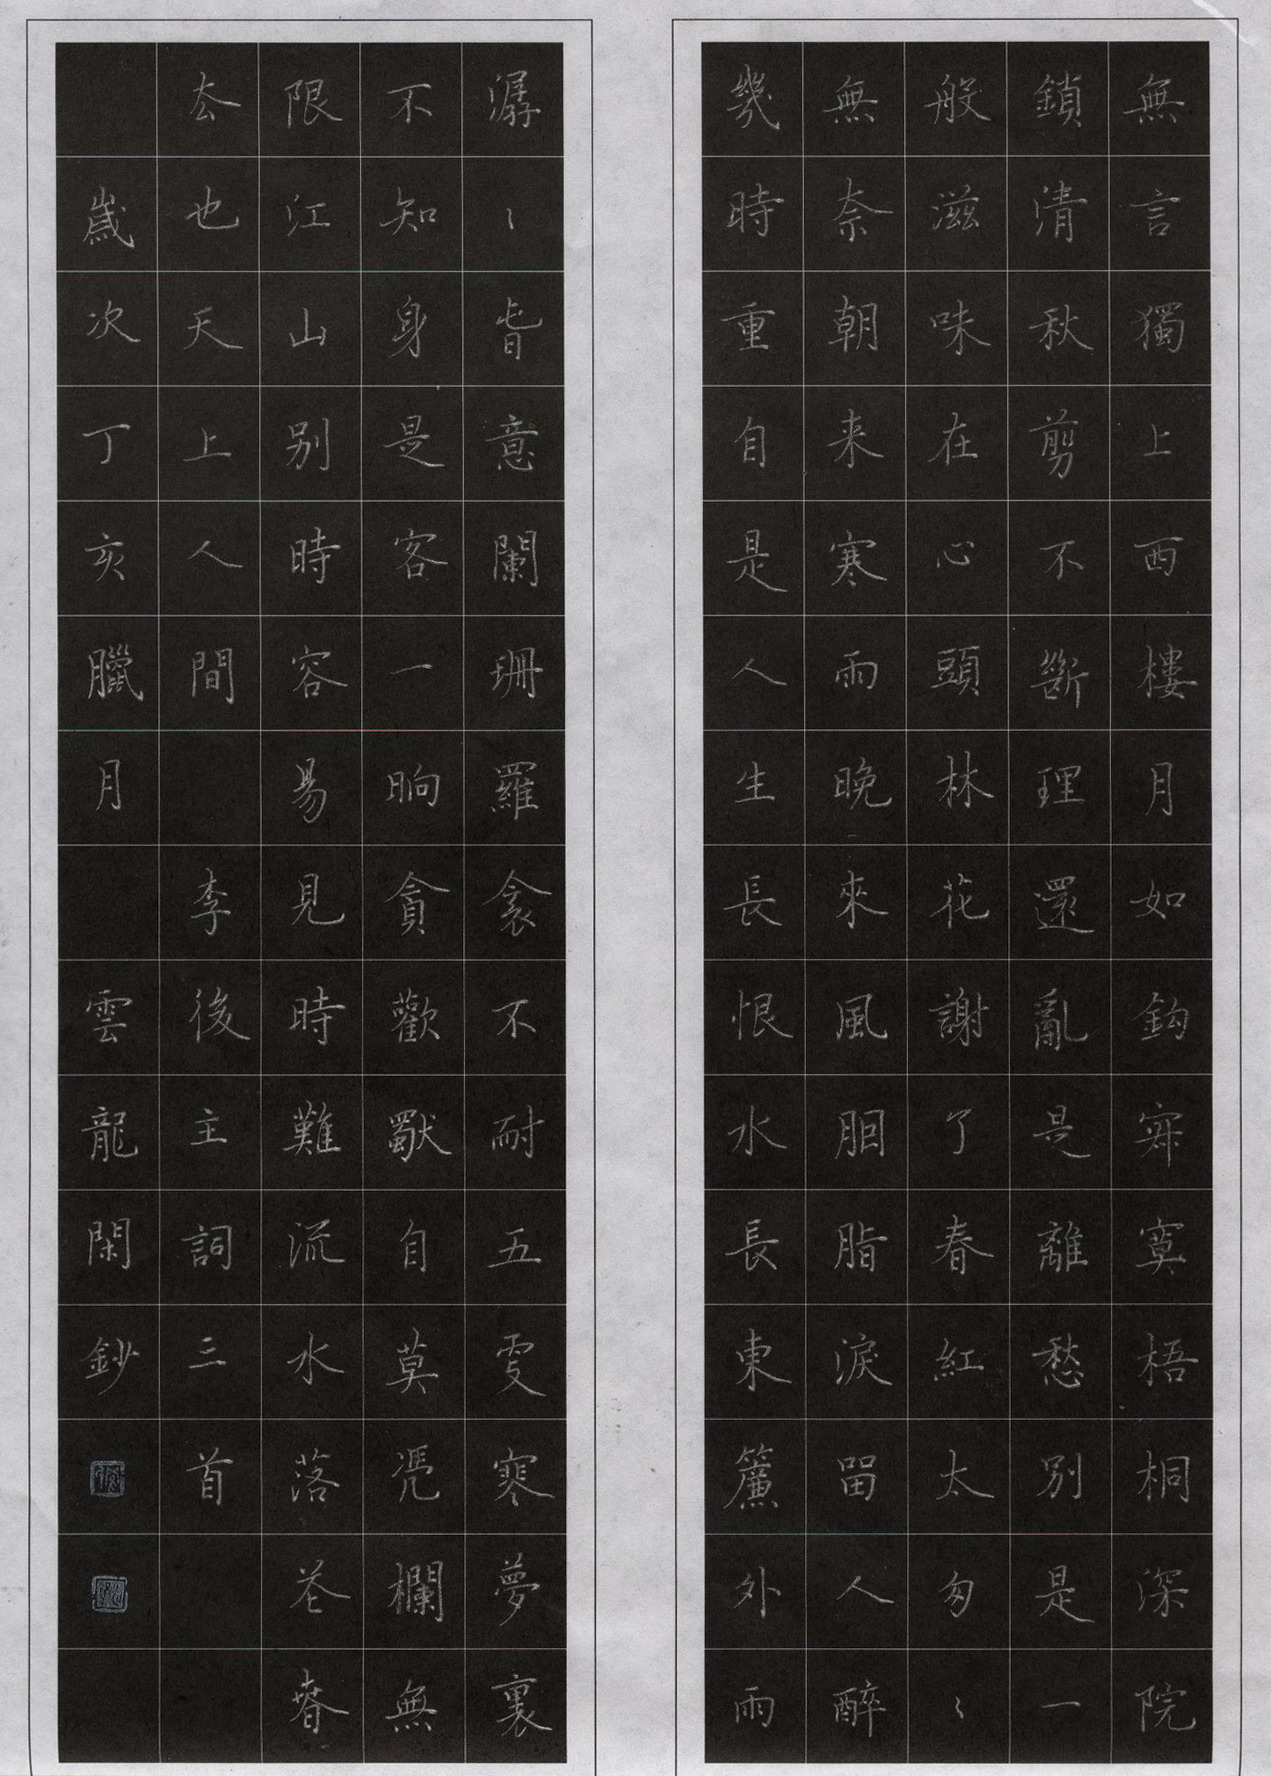 無言獨上西樓月如鈎寂寞梧桐深院
鎖清秋剪不斷理還亂是離愁別是一
般滋味在心頭林花謝了春紅太匆〻
無奈朝来寒雨晚來風胭脂淚留人醉
幾時重自是人生長恨水長東簾外雨
潺〻春意闌珊羅衾不耐五更寒夢裏
不知身是客一晌貪歡獨自莫凭欄無
限江山別時容易見時難流水落花春
去也天上人間 李後主詞三首
歲次丁亥臘月 雲龍閑鈔